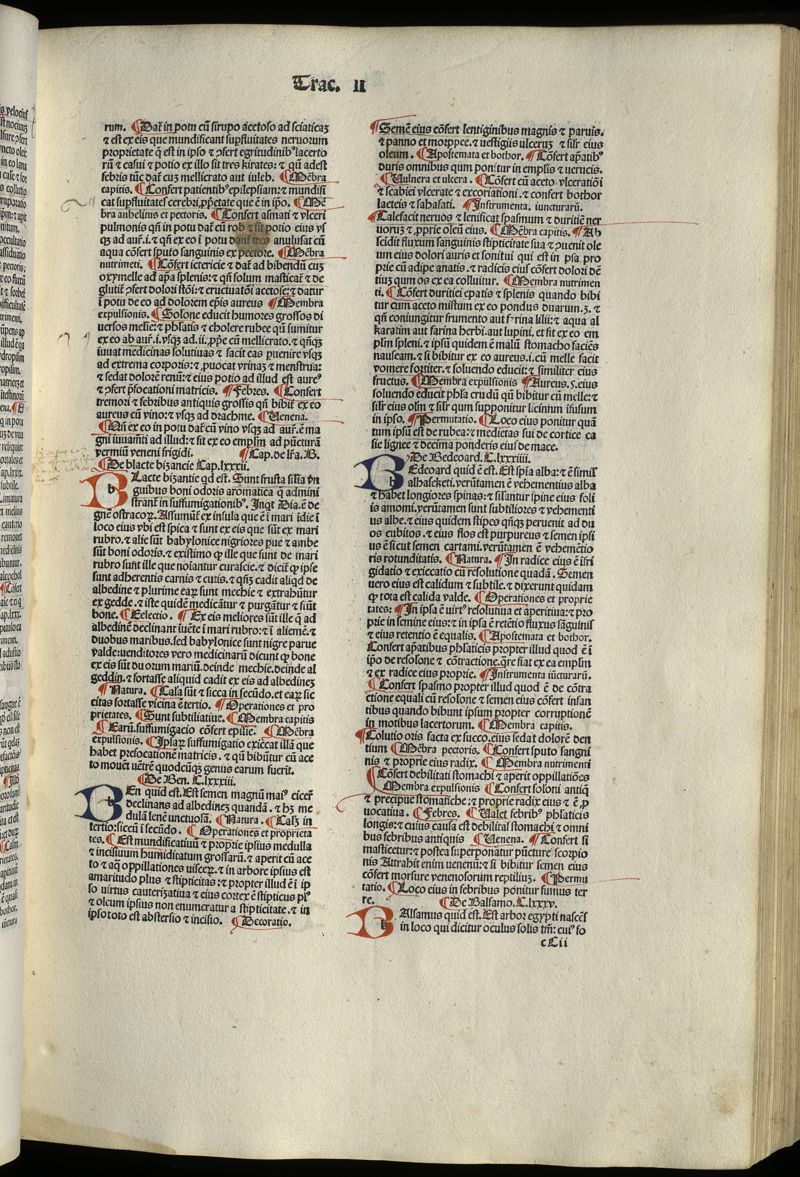 Trac. II
rum. ¶Dat᷑ in potu cū sirupo acetoso ad sciaticaʒ
⁊ est ex eis que mundificant supfluitates neruorum
proprietate q̄ est in ipso ⁊ ꝯsert egritudinibꝰ lacerto
rū ⁊ casui ⁊ potio ex illo sit tres kirates: ⁊ qn̄ adest
febris tūc dat᷑ cuʒ mellicrato aut iuleb. ¶Mēbra
capitis. ¶Confert patientibꝰ epilepsiam: ⁊ mundifi
cat supfluitates cerebri, ꝓpetate que ē in ip̄o. ¶Mē
bra anhelitus et pectoris. ¶Confert asmati ⁊ vlceri
pulmonis qn̄ in potu dat᷑ cū rob ⁊ sit potio eius vs
qʒ ad aur᷑.i. ⁊ qn̄ ex eo ī potu dant᷑ tres anulusat cū
aqua cōfert sputo sanguinis ex pectore. ¶Mēbra
nutrimeti. ¶Cōfert ictericie ⁊ dat᷑ ad bibendū cuʒ
oxymelle ad ap̄a splenis: ⁊ qn̄ solum masticat᷑ ⁊ de
glutit᷑ ꝯfert dolori stōi: ⁊ eructuatōi acetose: ⁊ datur
ī potu de eo ad dolorem ep̄is aureus ¶Membra
expulsionis. ¶Solone educit humores grossos di
uersos melle: ⁊ phlatis ⁊ cholere rubee qn̄ sumitur
ex eo ab aur᷑.i. vsqʒ ad.ii. ꝓp̄e cū mellicrato. ⁊ qn̄qʒ
iuuat medicinas solutiuas ⁊ facit eas puenire vsqʒ
ad extrema corporis: ⁊ ꝓuocat vrinaʒ ⁊ menstrua:
⁊ sedat dolorē renū: ⁊ eius potio ad illud est aureꝰ
⁊ ꝯfert p̄focationi matricis. ¶Febres. ¶Confert
tremori ⁊ febribus antiquis grossis qn̄ bibit᷑ ex eo
aureus cū vino: ⁊ vsqʒ ad drachme. ¶Venena.
¶Qn̄ ex eo in potu dat᷑ cū vino vsqʒ ad aur᷑. ē ma
gni iuuam̄ti ad illud: ⁊ fit ex eo emplm̄ ad pūcturā
vermiū veneni frigidi. ¶Cap. de lr̄a. B.
¶De blacte bizancie Cap.lxxxii.
BLacte bizantie qd est. Sunt frusta silia vn̄
guibus boni odoris aromatica q̄ admini
strant᷑ in suffumigationibꝰ. Inqt Dia. ē de
gn̄e ostracoꝝ. Assumūt᷑ ex insula que ē ī mari īdie ī
loco eius vbi est spica ⁊ sunt ex eis que sūt ex mari
rubro. ⁊ alie sūt babylonice nigriores pue ⁊ ambe
sūt boni odoris. ⁊ existimo ꝙ ille que sunt de mari
rubro sunt ille que noīantur curascie. ⁊ dicit᷑ ꝙ ipse
sunt adherentis carnis ⁊ cutis. ⁊ qn̄qʒ cadit aliqd de
albedine ⁊ plurime eaꝝ sunt mechie ⁊ extrahūtur
ex gedde. ⁊ iste quidē medicāt᷑ur ⁊ purgāt᷑ur ⁊ siūt
bone. ¶Eelectio. ¶Ex eis meliores sūt ille q̄ ad
albedinē declinant īuēte ī mari rubro: ⁊ ī aliemē. ⁊
duobus maribus. sed babylonice sunt nigre parue
valde: uenditores vero medicinarū dicunt ꝙ bone
ex eis sūt du orum mariū. deinde mechie. deinde al
geddin. ⁊ fortasse aliquid cadit ex eis ad albedineʒ
¶Natura. ¶Cala sūt ⁊ sicca in secūdo. et eaꝝ sic
citas fortasse vicina ē tertio. ¶Operationes et pro
prietates. ¶Sunt subtiliatiue. ¶Membra capitis
¶Earū. suffumigacio cōfert epilie. ¶Mēbra
expulsionis. ¶Iplaꝝ suffumigatio exiccat illā que
habet presocationē matricis. ⁊ qn̄ bibūtur cū ace
to mouēt vētrē quodcūqʒ genus earum fuerit.
¶De Ben. C.lxxxiii.
BEn quid est. Est semen magnū maiꝰ cicer᷑
declinans ad albedineʒ quandā. ⁊ hʒ me
dulā lenē unctuosā. ¶Natura. ¶Cal̄ʒ in
tertio: siccū ī secūdo. ¶Operationes et proprieta
tes. ¶Est mundificatiuū ⁊ proprie ipsius medulla
⁊ incisiuum humiditatum grossarū. ⁊ aperit cū ace
to ⁊ aq̄ oppillationes visceꝝ. ⁊ in arbore ipsius est
amaritudo plus ⁊ stipticitas: ⁊ propter illud ē ī ip
so virtus cauterizatiua ⁊ eius cortex ē stipticus plꝰ
⁊ oleum ipsius non enumeratur a stipticitate. ⁊ in
ipso toto est abstersio ⁊ incisio. ¶Decoratio.
¶Semē eius cōfert lentiginibus magnis ⁊ paruis.
⁊ panno et morppee. ⁊ uestigiis ulceruʒ ⁊ silr̄ eius
oleum. ¶Apostemata et bothor. ¶Cōfert ap̄atibꝰ
duris omnibus qum ponitur in emplis ⁊ uerucis.
¶Vulnera et ulcera. ¶Cōfert cū aceto vlceratiōi
⁊ scabiei vlcerate ⁊ excoriationi. ⁊ confert bothor
lacteis ⁊ sahafati. ¶Instrumenta. iuncturarū.
¶Calefacit neruos ⁊ lenificat spasmum ⁊ duritiē ner
uoruʒ ⁊ ꝓprie oleū eius. ¶Mēbra capitis. ¶Ab
scidit fluxum sanguinis stipticitate sua ⁊ ꝯuenit ole
um eius dolori auris et sonitui qui est in psa pro
prie cū adipe anatis. ⁊ radicis eiꝰ cōfert dolori dē
tiuʒ qum os ex ea colluitur. ¶Membra nutrimen
ti. ¶Cōfert duritici epatis ⁊ splenis quando bibi
tur cum aceto mistum ex eo pondus duarum.ʒ. ⁊
qn̄ coniungitur frumento aut f᷑rina lilii: ⁊ aqua al
karatim aut farina herbi. aut lupini. et fit ex eo em
plm̄ spleni. ⁊ ipsū quidem ē malū stomacho faciēs
nauseam. ⁊ si bibitur ex eo aureus.i.cū melle facit
vomere fortiter. ⁊ soluendo educit: ⁊ similiter eius
fructus. ¶Membra expulsionis ¶Aureus.s.eius
soluendo educit phla crudū qn̄ bibitur cū melle: ⁊
silr̄ eius olm̄ ⁊ silr̄ qum supponitur licinium īfusum
in ipso. ¶Permutatio. ¶Loco eius ponitur quā
tum ipsū est de rubea: ⁊ medietas sui de cortice ca
sie lignee ⁊ decima ponderis eiuf de mace.
¶De Bedeoard. C.lxxxiiii.
BEdeoard quid ē est. Est spīa alba: ⁊ ē simil᷑
albasketi. verūtamen ē vehementius alba
⁊ habet longiores spinas: ⁊ silantur spine eius foli
is amomi. verūtamen sunt subtiliores ⁊ vehementi
us albe. ⁊ eius quidem stipes qn̄qʒ peruenit ad du
os cubitos. ⁊ eius flos est purpureus ⁊ semen ipsi
us ē sicut semen cartami. verūtamen ē vehemētio
ris rotunditatis. ¶Natura. ¶In radice eius ē īfri
gidatio ⁊ exiccatio cū resolutione quadā. Semen
vero eius est calidum ⁊ subtile. ⁊ dixerunt quidam
ꝙ tota est calida valde. ¶Operationes et proprie
tates: ¶In ipsa ē uirtꝰ resolutiua et aperitiua: ⁊ pro
prie in semine eius: ⁊ in ipsa ē retētio fluxus sāguinis
⁊ eius retentio ē equalis. ¶Apostemata et bothor.
Confert ap̄atibus phlaticis propter illud quod ē ī
ip̄o de resolone ⁊ cōtractione. qr̄e fiat ex ea emplm̄
⁊ ex radice eius proprie. ¶Instrumenta iūcturarū.
¶Confert spasmo propter illud quod ē de cōtra
ctione equali cū resolone ⁊ semen eius cōfert infan
tibus quando bibunt ipsum propter corruptionē
in motibus lacertorum. ¶Membra capitis.
¶Colutio oris facta ex succo. eius sedat dolorē den
tium ¶Mēbra pectoris. ¶Confert sputo sangui
nis ⁊ proprie eius radix. ¶Membra nutrimenti
¶Cōfert debilitati stomachi ⁊ aperit oppillatiōes
¶Membra expulsionis ¶Confert soloni antiq̄
⁊ precipue stomatiche: ⁊ proprie radix eius ⁊ ē, ꝓ
uocatiua. ¶Febres. ¶Valet febribꝰ phlaticis
longis: ⁊ cuius causa est debilitas stomachi ⁊ omni
bus febribus antiquis ¶Venena. ¶Confert si
masticetur: ⁊ postea superponatur pūcture scorpio
nis Attrahit enim uenenū: ⁊ si bibitur semen eius
cōfert morsure venenosorum reptilium. ¶Permu
tatio. ¶Loco eius in febribus ponitur fumus ter
re. ¶De Balsamo. C.lxxxv.
BAlsamus quid est. Est arbor egypti nascēs
in loco qui dicitur oculus solis tm̄: cuiꝰ fo
c C ii